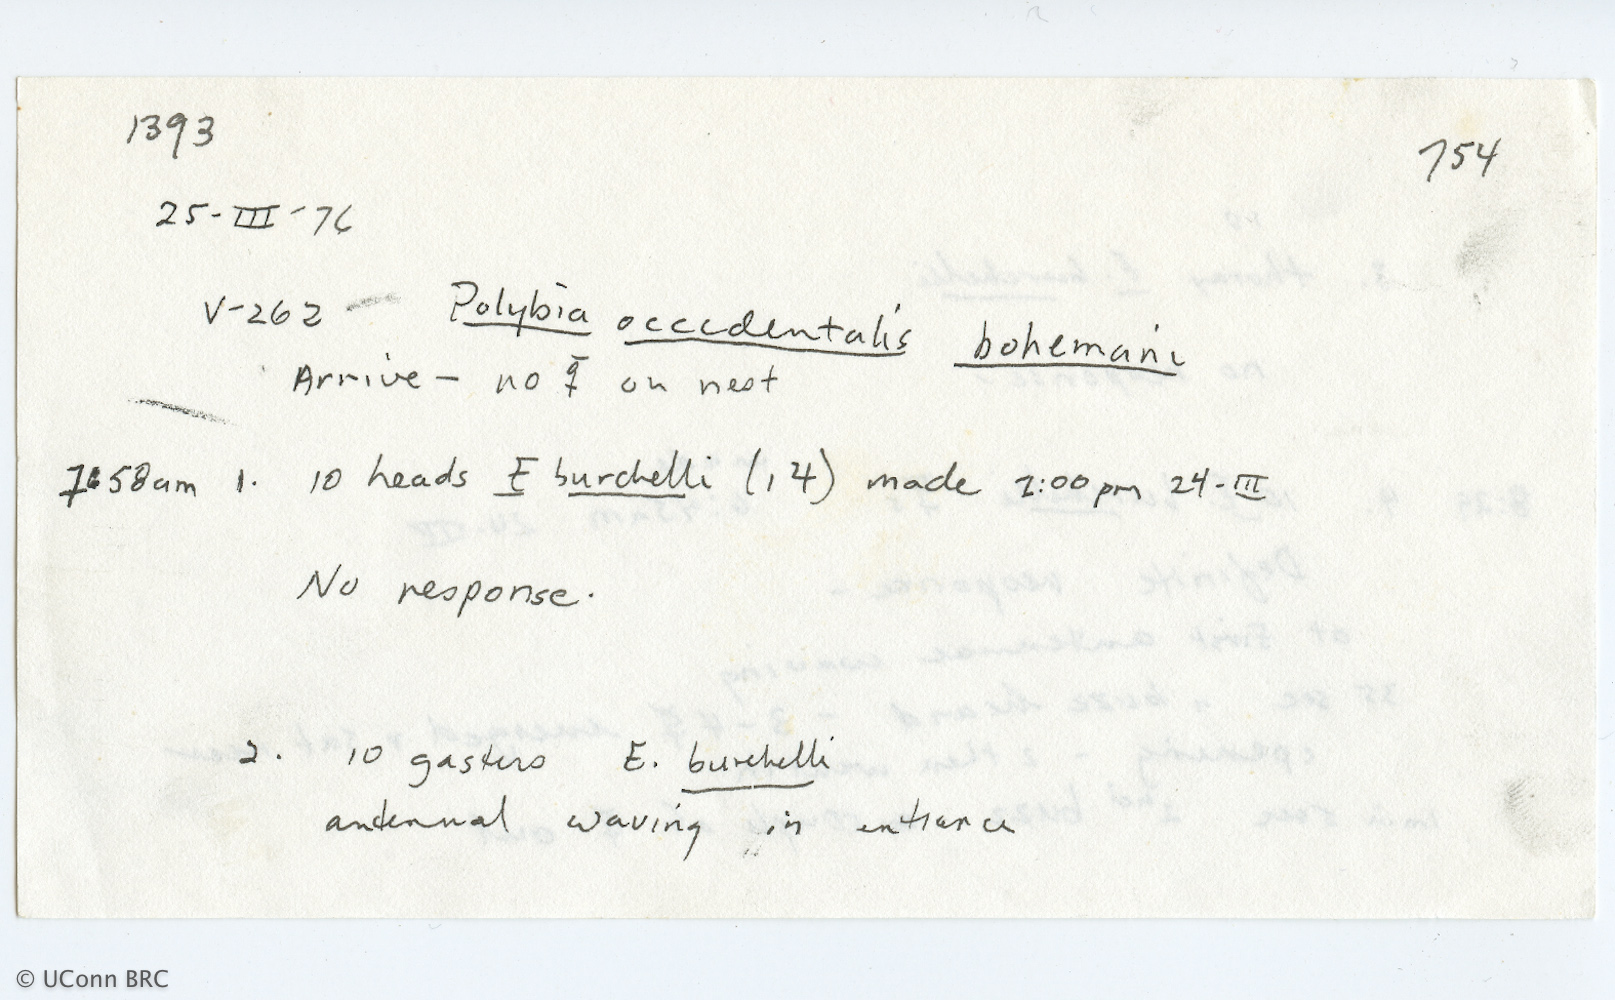 1393
754
25-III-76
V-262 - Polybia occidentalis bohemani
Arrive - no ☿ on nest
7:58am 1. 10 heads E burchelli (,4) made 2:00pm 24-III
No response.
2. 10 gasters E. burchelli
antennal waving in entrance
© UConn BRC